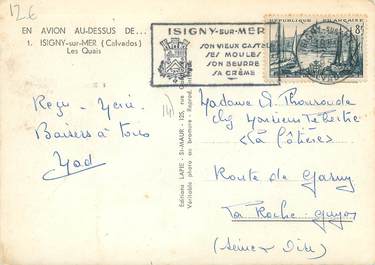 12€
EN AVION AU-DESSUS DE...
1. ISIGNY-sur-MER (Calvados)
Les Quais
ISIGNY-SUR-MER
SON VIEUX CASTEL
SES MOULES
SON BEURRE
SA CRÈME
REPUBLIQUE FRANÇAISE
8F
Reçu - Merci
Baisers à tous
Editions LAPIE - St-MAUR - 125, rue
Véritable photo au bromure - Reprod.
14
Madame A. Thouroude
chez Monsieur
"La Côtière"
Route de Gasny
La Roche-Guyon
(Seine & Oise)